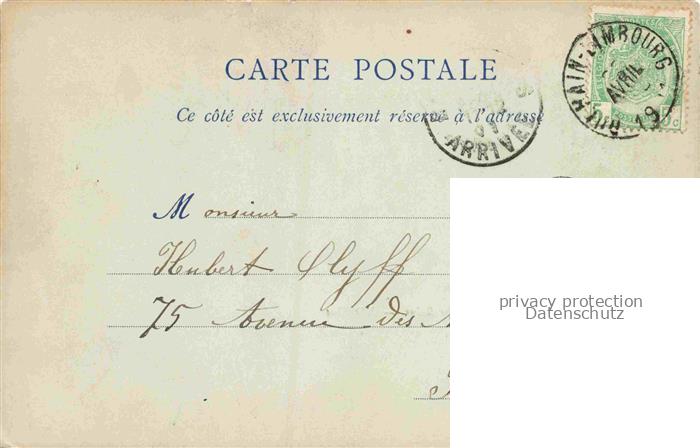 CARTE POSTALE
Ce côté est exclusivement réservé à l'adresse
DOLHAIN-LIMBOURG
AVRIL
ARRIVÉE
5 c
Monsieur
Hubert Olyff
75 Avenue des
privacy protection
Datenschutz